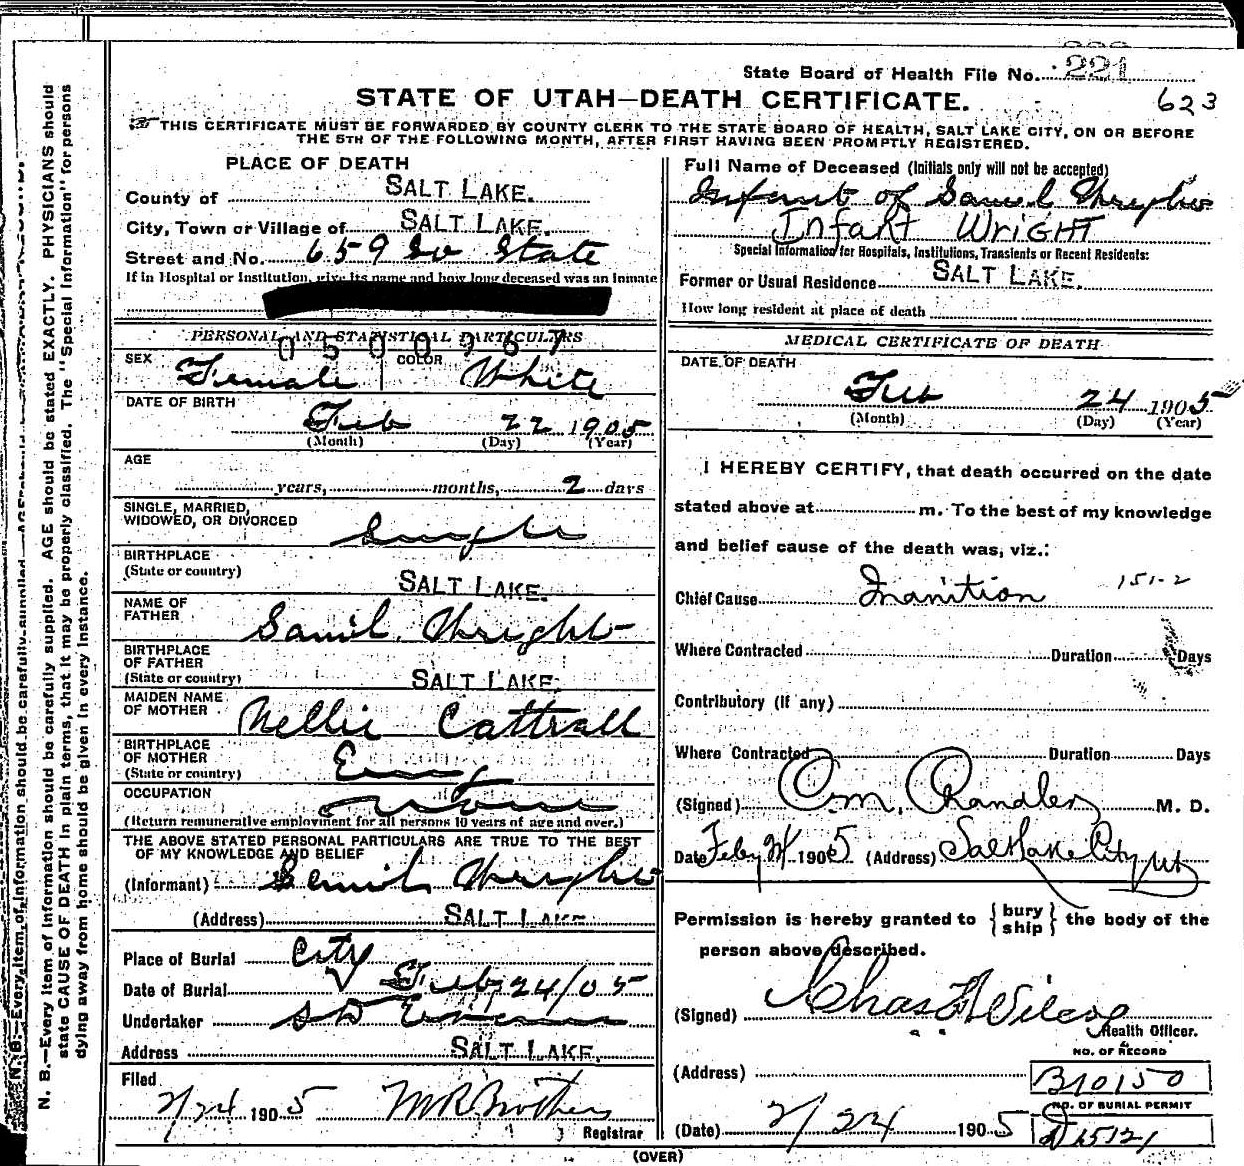 State Board of Health File No. 221
623
STATE OF UTAH—DEATH CERTIFICATE.
THIS CERTIFICATE MUST BE FORWARDED BY COUNTY CLERK TO THE STATE BOARD OF HEALTH, SALT LAKE CITY, ON OR BEFORE
THE 5TH OF THE FOLLOWING MONTH, AFTER FIRST HAVING BEEN PROMPTLY REGISTERED.
N. B.—Every item of information should be carefully supplied. AGE should be stated EXACTLY. PHYSICIANS should
state CAUSE OF DEATH in plain terms, that it may be properly classified. The "Special Information" for persons
dying away from home should be given in every instance.
PLACE OF DEATH
County of SALT LAKE.
City, Town or Village of SALT LAKE.
Street and No. 659 So State
If in Hospital or Institution, give its name and how long deceased was an Inmate
PERSONAL AND STATISTICAL PARTICULARS
0500967
SEX Female COLOR White
DATE OF BIRTH
Feb 22 1905
(Month) (Day) (Year)
AGE
years, months, 2 days
SINGLE, MARRIED,
WIDOWED, OR DIVORCED Single
BIRTHPLACE
(State or country) SALT LAKE.
NAME OF
FATHER Saml. Wright
BIRTHPLACE
OF FATHER
(State or country) SALT LAKE.
MAIDEN NAME
OF MOTHER Nellie Cattrall
BIRTHPLACE
OF MOTHER
(State or country) Eng
OCCUPATION none
(Return remunerative employment for all persons 10 years of age and over.)
THE ABOVE STATED PERSONAL PARTICULARS ARE TRUE TO THE BEST
OF MY KNOWLEDGE AND BELIEF
(Informant) Samuel Wright
(Address) SALT LAKE
Place of Burial City
Date of Burial Feb 24/05
Undertaker S D Evans
Address SALT LAKE.
Filed
2/24 1905 M R Brothers
Registrar
Full Name of Deceased (Initials only will not be accepted)
Infant of Samuel Wright
INFANT WRIGHT
Special Information for Hospitals, Institutions, Transients or Recent Residents:
Former or Usual Residence SALT LAKE.
How long resident at place of death
MEDICAL CERTIFICATE OF DEATH
DATE OF DEATH
Feb 24 1905
(Month) (Day) (Year)
I HEREBY CERTIFY, that death occurred on the date
stated above at m. To the best of my knowledge
and belief cause of the death was, viz.:
Chief Cause Inanition 151-2
Where Contracted Duration Days
Contributory (if any)
Where Contracted Duration Days
(Signed) C.M. Chandler M. D.
Date Feby 24 1905 (Address) Salt Lake City Ut
Permission is hereby granted to {bury ship} the body of the
person above described.
(Signed) Chas F Wilcox
Health Officer.
NO. OF RECORD
(Address) B10150
NO. OF BURIAL PERMIT
(Date) 2/24 1905 D15121
(OVER)